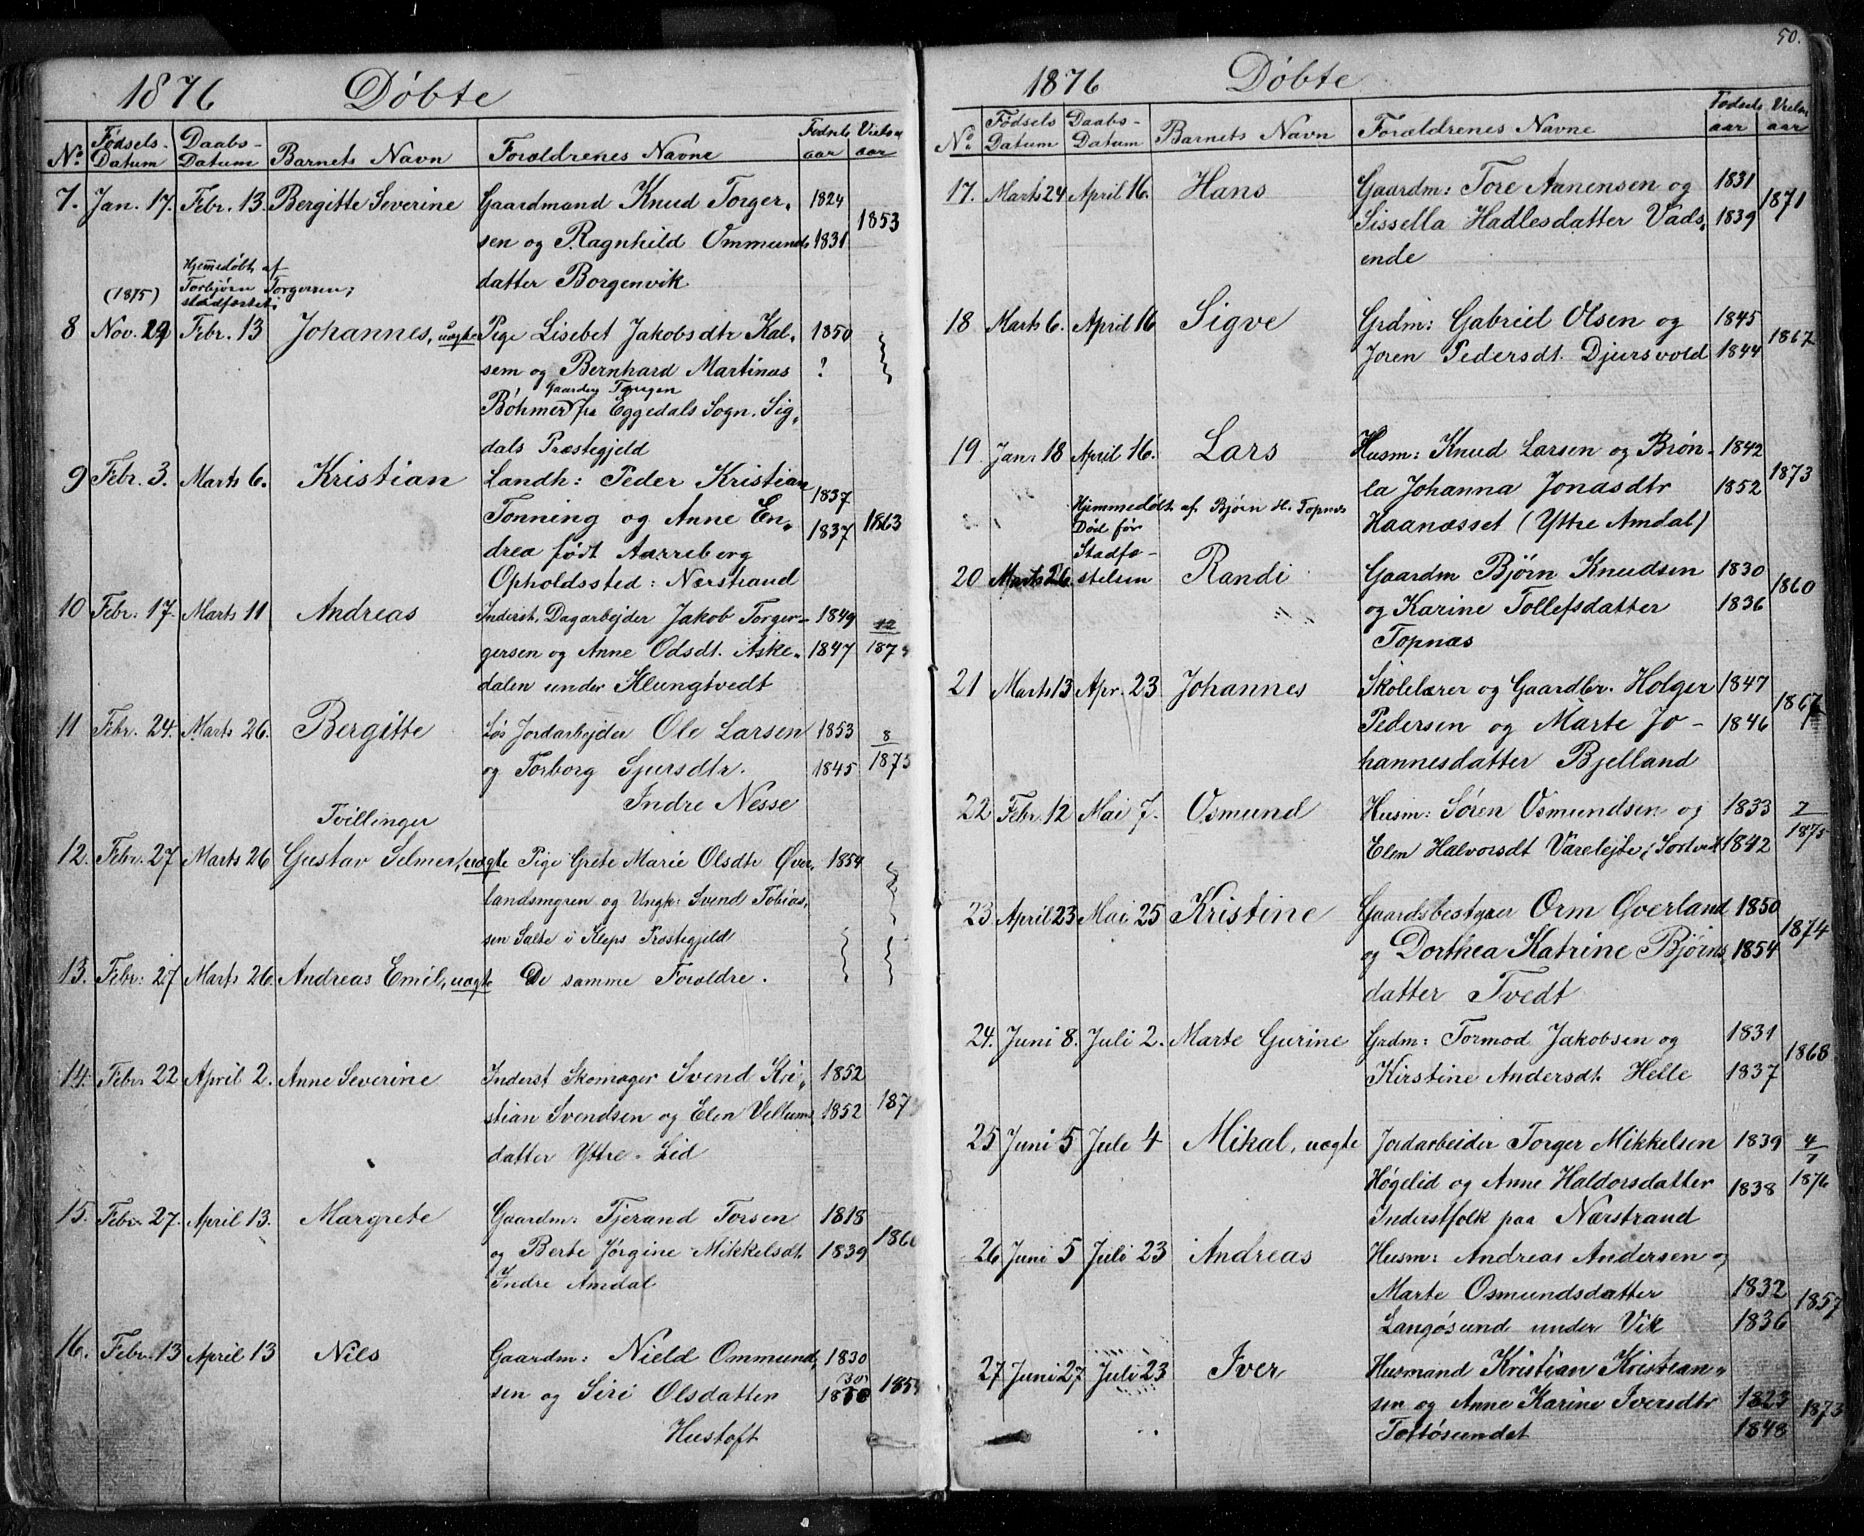 1876 Döbte
No. Fødsels-Datum Daabs-Datum Barnets Navn Forældrenes Navne Fødsels aar Vielses aar
7. Jan. 17. Febr. 13. Bergitte Severine Gaardmand Knud Torger- 1824
sen og Ragnhild Ommunds 1831 1853
datter Borgenvik
Hjemmedöbt af
Torbjörn Torgersen;
(1875) stadfæstet;
8 Nov. 29 Febr. 13 Johannes, uægte Pige Lisebet Jakobsdtr Kal- 1850
sem og Bernhard Martinus ?
Gaarden Tougen
Böhmer fra Eggedals Sogn. Sig-
dals Præstegjeld
9 Febr. 3. Marts 6. Kristian Landh: Peder Kristian 1837
Tonning og Anne En- 1837 1863
drea født Aarreberg
Opholdssted: Nærstrand
10 Febr. 17. Marts 11 Andreas Inderst, Dagarbejder Jakob Torger- 1849 12
gersen og Anne Odsdt. Aske- 1847 187
dalen under Klungtvedt
11 Febr. 24. Marts 26. Bergitte Løs Jordarbejder Ole Larsen 1853 8
og Torborg Sjursdtr. 1845 1875
Indre Nesse
Tvillinger
12. Febr. 27 Marts 26 Gustav Selmer, uægte Pige Grete Marie Olsdtr Øver- 1854
landsmyren og Ungk: Svend Tobias-
sen Salte i Kleps Præstegjeld
13. Febr. 27 Marts 26. Andreas Emil, uægte De samme Forældre.
14. Febr 22 April 2. Anne Severine Inderst Skomager Svend Kri- 1852
stian Svendsen og Elen Vellums 1852 187
datter Yttre-Lid
15. Febr 27. April 13. Margrete Gaardm: Tjerand Torsen 1818
og Berte Jörgine Mikkelsdt. 1839 186
Indre Amdal
16. Febr. 13 April 13 Nils Gaardm: Nield Ommund- 1830
sen og Siri Olsdatter 185
Hustoft
50.
1876 Döbte
No. Fødsels Datum Daabs-Datum Barnets Navn Forældrenes Navne Fødsels aar Vielses aar
17. Marts 24 April 16. Hans Gaardm: Tore Aanensen og 1831
Sissella Hadlesdatter Vads- 1839 1871
ende
18 Marts 6. April 16 Sigve Grdm: Gabriel Olsen og 1845
Joren Pedersdt. Djursvold 1844 1867
19 Jan. 18 April 16. Lars Husm: Knud Larsen og Brøn- 1842
la Johanna Jonasdtr 1852 1873
Haanæsset (Yttre Amdal)
Hjemmedöbt af Bjørn H. Topnes
Död før
Stadfæ-
20 Marts 26. stelsen Randi Gaardm Bjørn Knudsen 1830
og Karine Tollefsdatter 1836 1860
Topnæs
21 Marts 13 Apr. 23 Johannes Skolelærer og Gaardbr. Holger 1847
Pedersen og Marte Jo- 1846 1867
hannesdatter Bjelland
22 Febr. 12 Mai 7. Osmund Husm: Søren Osmundsen og 1833 7
Elen Halvorsdt Vareleite, Sortvedt 1842 1875
23 April 23 Mai 25 Kristine Gaardsbestyrer Orm Qverland 1850
og Dorthea Katrine Bjørns- 1854 1874
datter Tvedt
24. Juni 8. Juli 2. Marte Gurine Grdm: Tormod Jakobsen og 1831
Kirstine Andersdt. Helle 1837 1868
25 Juni 5 Juli 4 Mikal, uægte Jordarbeider Torger Mikkelsen 1839 4/7
Høgelid og Anne Haldorsdatter 1838 1876
Inderstfolk paa Nærstrand
26 Juni 5 Juli 23 Andreas Husm: Andreas Andersen og
Marte Osmundsdatter 1832
Langøsund under Vik 1836 1857
27 Juni 27 Juli 23 Iver Husmand Kristian Kristian-
sen og Anne Karine Iversdtr 1823
Toftøsundet 1848 1873